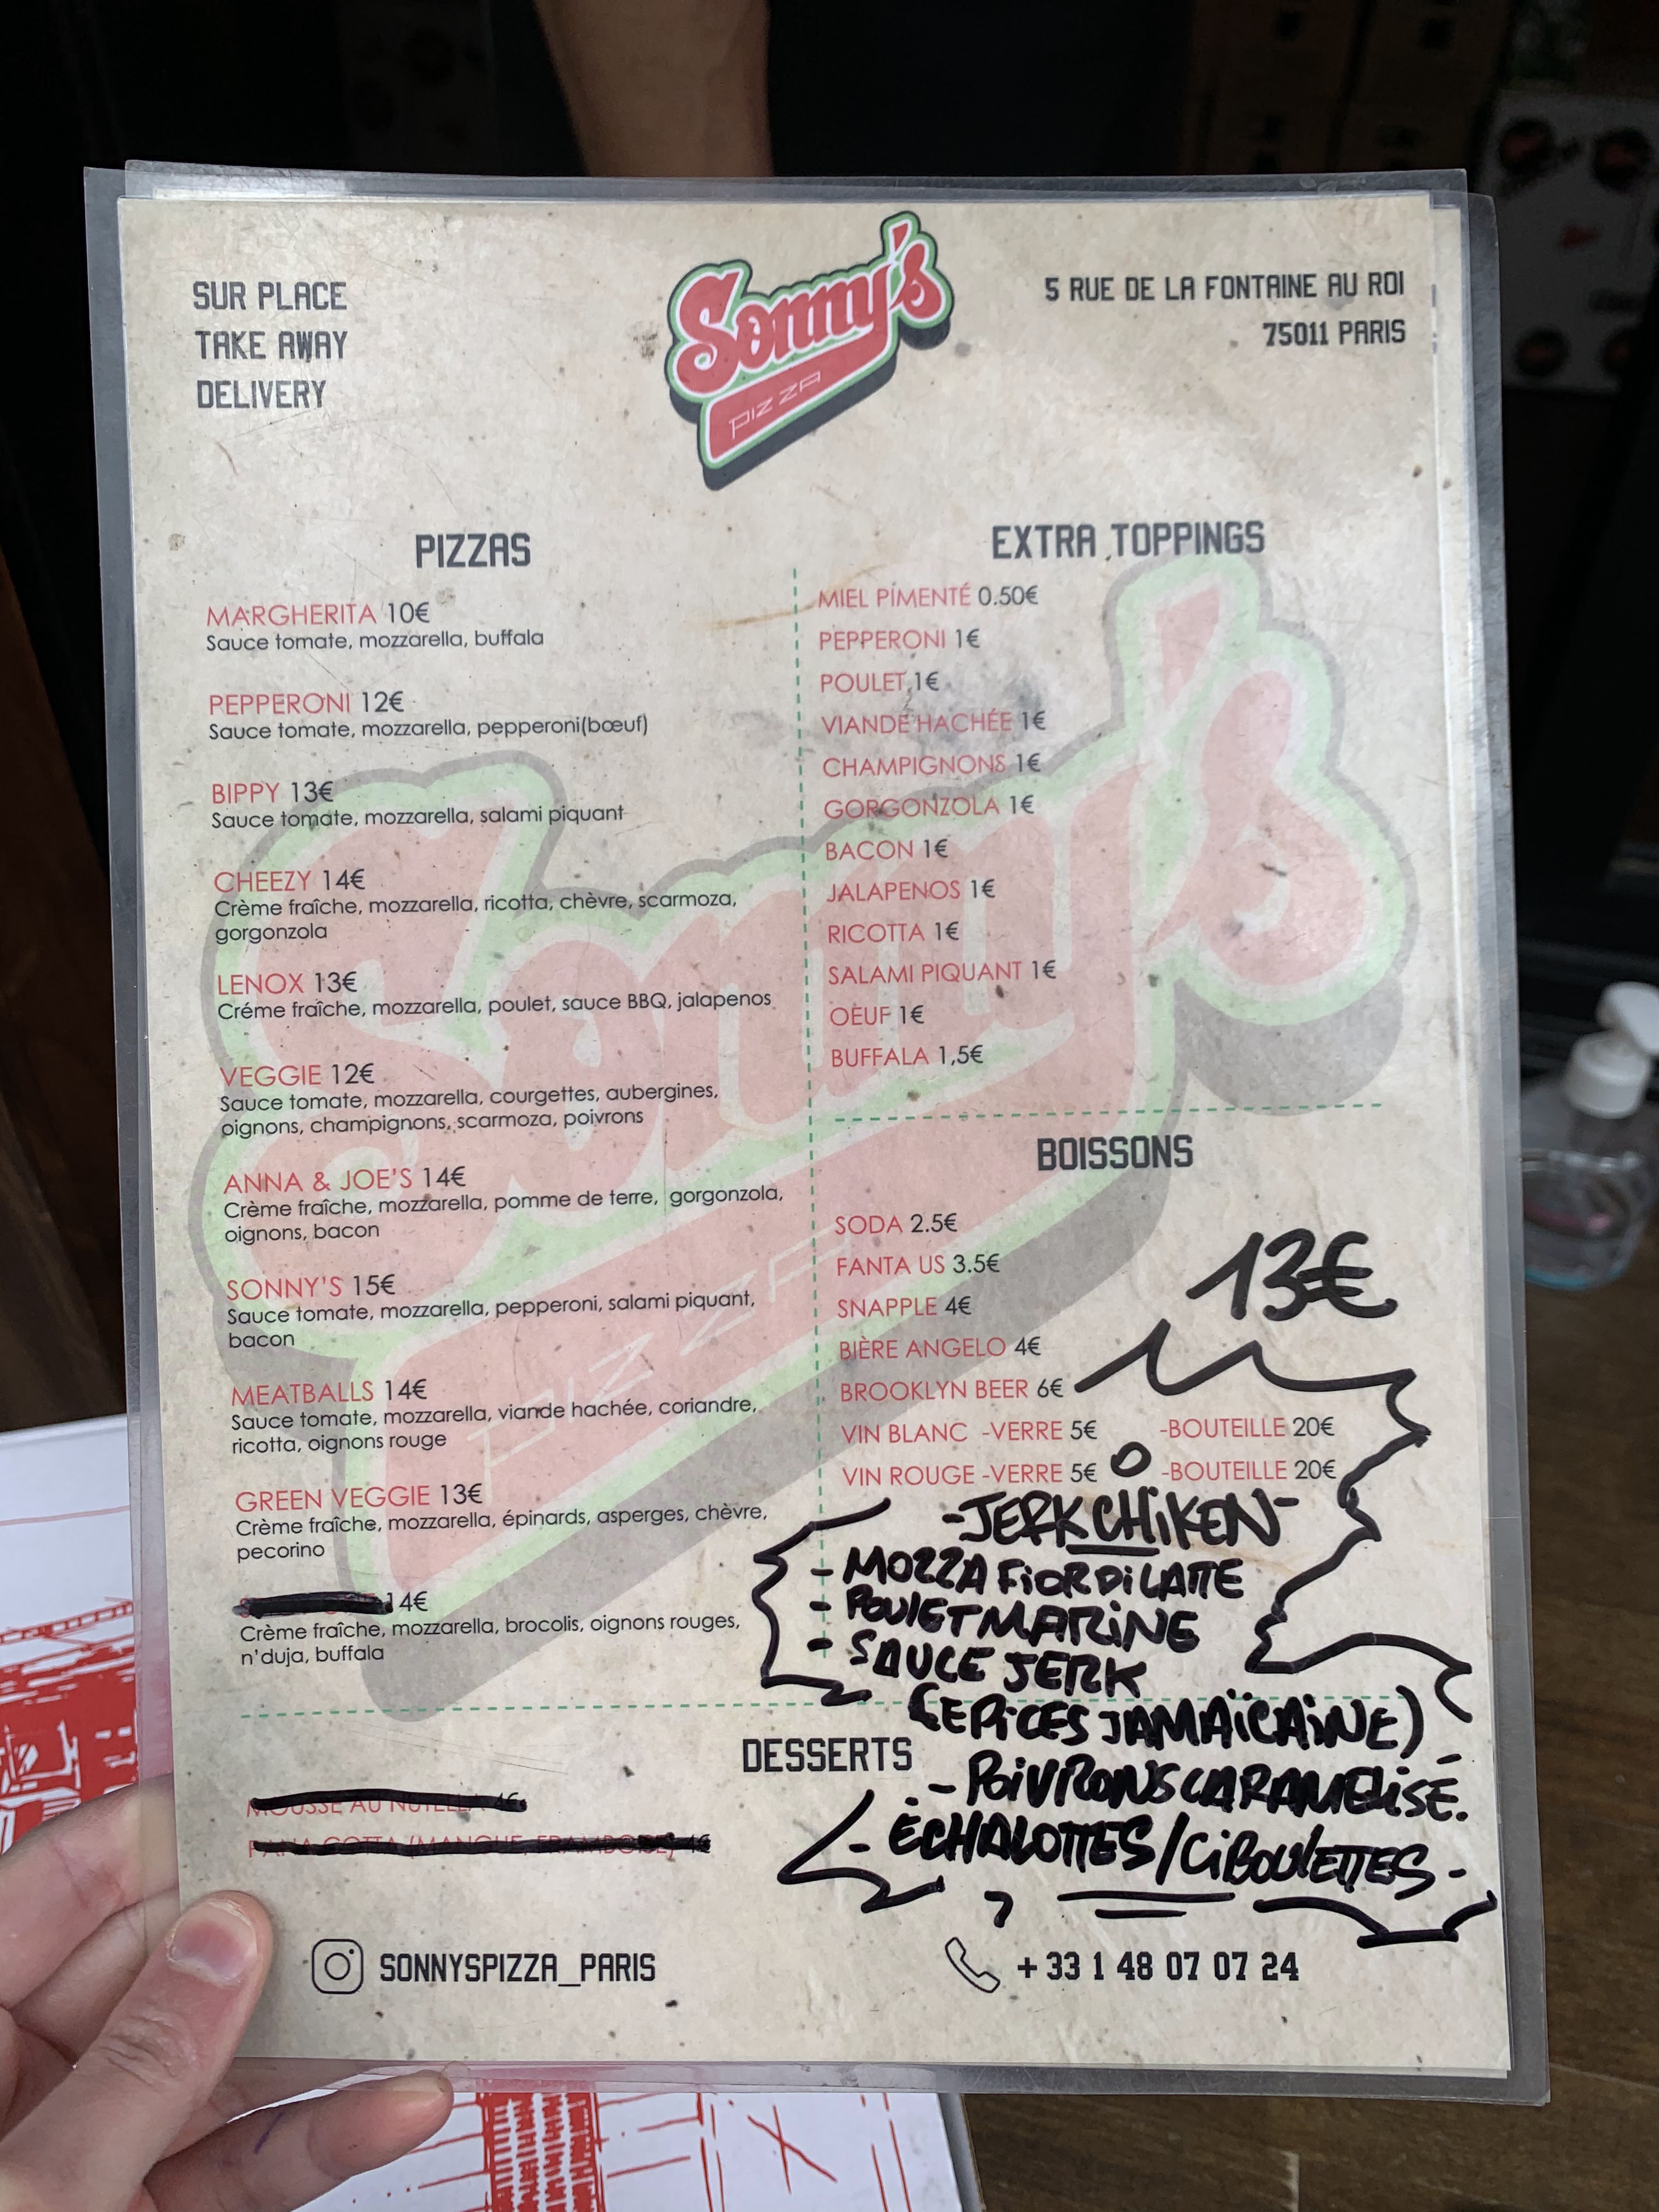 SUR PLACE
TAKE AWAY
DELIVERY
Sonny's
PIZZA
5 RUE DE LA FONTAINE AU ROI
75011 PARIS
PIZZAS
MARGHERITA 10€
Sauce tomate, mozzarella, buffala
PEPPERONI 12€
Sauce tomate, mozzarella, pepperoni(bœuf)
BIPPY 13€
Sauce tomate, mozzarella, salami piquant
CHEEZY 14€
Crème fraîche, mozzarella, ricotta, chèvre, scarmoza,
gorgonzola
LENOX 13€
Créme fraîche, mozzarella, poulet, sauce BBQ, jalapenos
VEGGIE 12€
Sauce tomate, mozzarella, courgettes, aubergines,
oignons, champignons, scarmoza, poivrons
ANNA & JOE'S 14€
Crème fraîche, mozzarella, pomme de terre, gorgonzola,
oignons, bacon
SONNY'S 15€
Sauce tomate, mozzarella, pepperoni, salami piquant,
bacon
MEATBALLS 14€
Sauce tomate, mozzarella, viande hachée, coriandre,
ricotta, oignons rouge
GREEN VEGGIE 13€
Crème fraîche, mozzarella, épinards, asperges, chèvre,
pecorino
14€
Crème fraîche, mozzarella, brocolis, oignons rouges,
n'duja, buffala
EXTRA TOPPINGS
MIEL PIMENTÉ 0.50€
PEPPERONI 1€
POULET 1€
VIANDE HACHÉE 1€
CHAMPIGNONS 1€
GORGONZOLA 1€
BACON 1€
JALAPENOS 1€
RICOTTA 1€
SALAMI PIQUANT 1€
OEUF 1€
BUFFALA 1,5€
BOISSONS
SODA 2.5€
FANTA US 3.5€
SNAPPLE 4€
BIÈRE ANGELO 4€
BROOKLYN BEER 6€
VIN BLANC -VERRE 5€ -BOUTEILLE 20€
VIN ROUGE -VERRE 5€ -BOUTEILLE 20€
13€
-JERK CHiKEN-
- MOZZA FiOR Di LATTE
- POULET MARiNE
- SAUCE JERK
(EPiCES JAMAÏCAiNE)
- POiVRONS CARAMELiSÉ.
- ÉCHALOTTES/CiBOULETTES -
DESSERTS
MOUSSE AU NUTELLA 4€
PANA COTTA (MANGUE, FRAMBOISE) 4€
SONNYSPIZZA_PARIS
+ 33 1 48 07 07 24